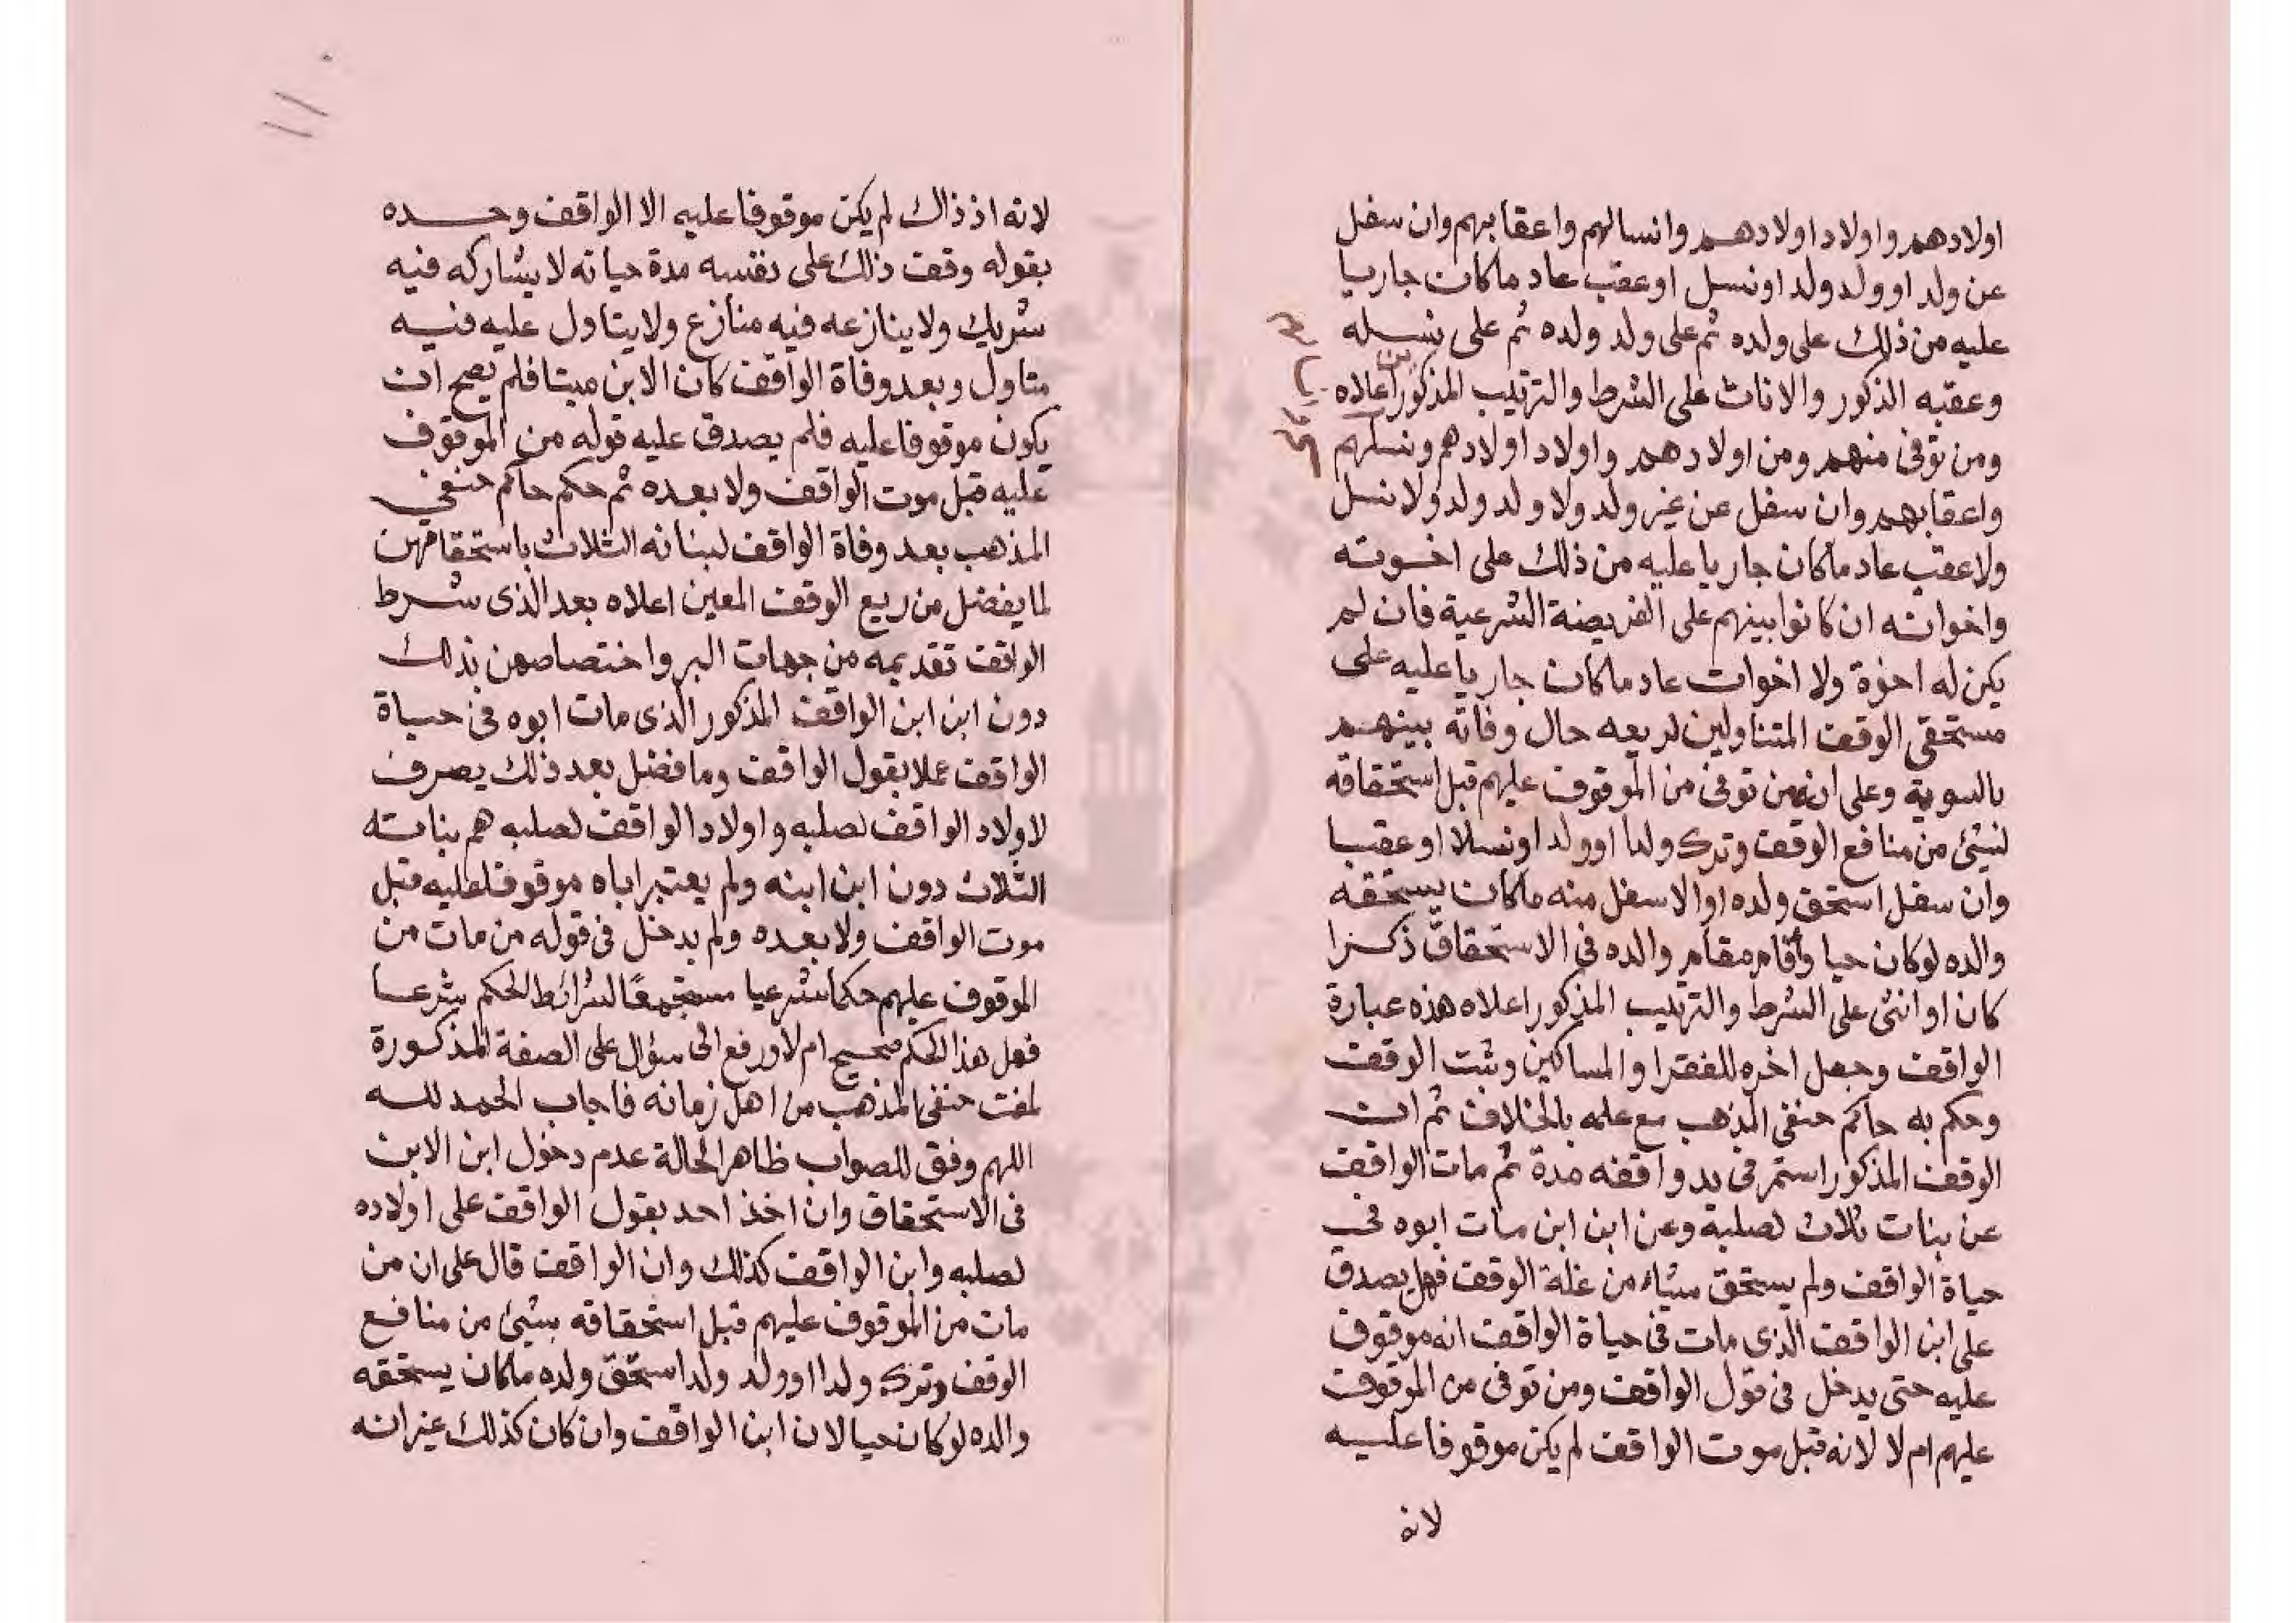 اولادهم واولاد اولادهم وانسالهم واعقابهم وان سفل
عن ولد او ولد ولد او نسل او عقب عاد ما كان جاريا
عليه من ذلك على ولده ثم على ولد ولده ثم على نسله
وعقبه الذكور والاناث على الشرط والترتيب المذكورين اعلاه
ومن توفى منهم ومن اولادهم واولاد اولادهم ونسلهم
واعقابهم وان سفل عن غير ولد ولا ولد ولد ولا نسل
ولا عقب عاد ما كان جاريا عليه من ذلك على اخوته
واخواته ان كانوا بينهم على الفريضة الشرعية فان لم
يكن له اخوة ولا اخوات عاد ما كان جاريا عليه على
مستحقي الوقف المتناولين لريعه حال وفاته بينهم
بالسوية وعلى انه من توفى من الموقوف عليهم قبل استحقاقه
لشيئ من منافع الوقف وترك ولدا او ولد او نسلا او عقبا
وان سفل استحق ولده او الاسفل منه ما كان يستحقه
والده لو كان حيا وأقام مقام والده في الاستحقاق ذكرا
كان او انثى على الشرط والترتيب المذكور اعلاه هذه عبارة
الواقف وجعل اخره للفقرا والمساكين وثبت الوقف
وحكم به حاكم حنفى المذهب مع علمه بالخلاف ثم ان
الوقف المذكور استمر فى يد واقفه مدة ثم مات الواقف
عن بنات ثلاث لصلبه وعن ابن ابن مات ابوه في
حياة الواقف ولم يستحق شياء من غلة الوقف فهل يصدق
على ابن الواقف الذى مات فى حياة الواقف انه موقوف
عليه حتى يدخل فى قول الواقف ومن توفى من الموقوف
عليهم ام لا لانه قبل موت الواقف لم يكن موقوفا عليه
لانه
لانه اذ ذاك لم يكن موقوفا عليه الا الواقف وحده
بقوله وقفت ذلك على نفسه مدة حياته لا يشاركه فيه
شريك ولا ينازعه فيه منازع ولا يتاول عليه فيه
متاول وبعد وفاة الواقف كان الابن ميتا فلم يصح ان
يكون موقوفا عليه فلم يصدق عليه قوله من الموقوف
عليه قبل موت الواقف ولا بعده ثم حكم حاكم حنفي
المذهب بعد وفاة الواقف لبناته الثلاث باستحقاقهن
لما يفضل من ريع الوقف المعين اعلاه بعد الذى شرط
الواقف تقديمه من جهات البر واختصاصهن بذلك
دون ابن ابن الواقف المذكور الذى مات ابوه فى حياة
الواقف عملا بقول الواقف وما فضل بعد ذلك يصرف
لاولاد الواقف لصلبه واولاد الواقف لصلبه هم بناته
الثلاث دون ابن ابنه ولم يعتبر اباه موقوفا عليه قبل
موت الواقف ولا بعده ولم يدخل فى قوله من مات من
الموقوف عليهم حكما شرعيا مستجمعا لشرائط الحكم شرعا
فهل هذا الحكم صحيح ام لا ورفع الى سؤال على الصفة المذكورة
لمفت حنفى المذهب من اهل زمانه فاجاب الحمد لله
اللهم وفق للصواب ظاهر الحالة عدم دخول ابن الابن
فى الاستحقاق وان اخذ احد بقول الواقف على اولاده
لصلبه وابن الواقف كذلك وان الواقف قال على ان من
مات من الموقوف عليهم قبل استحقاقه بشيئ من منافع
الوقف وترك ولدا او ولد ولد استحق ولده ما كان يستحقه
والده لو كان حيا لان ابن الواقف وان كان كذلك غير انه